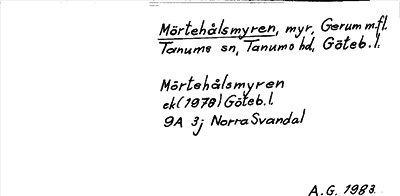 Mörtehålsmyren, myr, Gerum m.fl.
Tanums sn, Tanums hd, Göteb. l.
Mörtehålsmyren
ek (1978) Göteb. l.
9A 3j Norra Svandal
A.G. 1983.